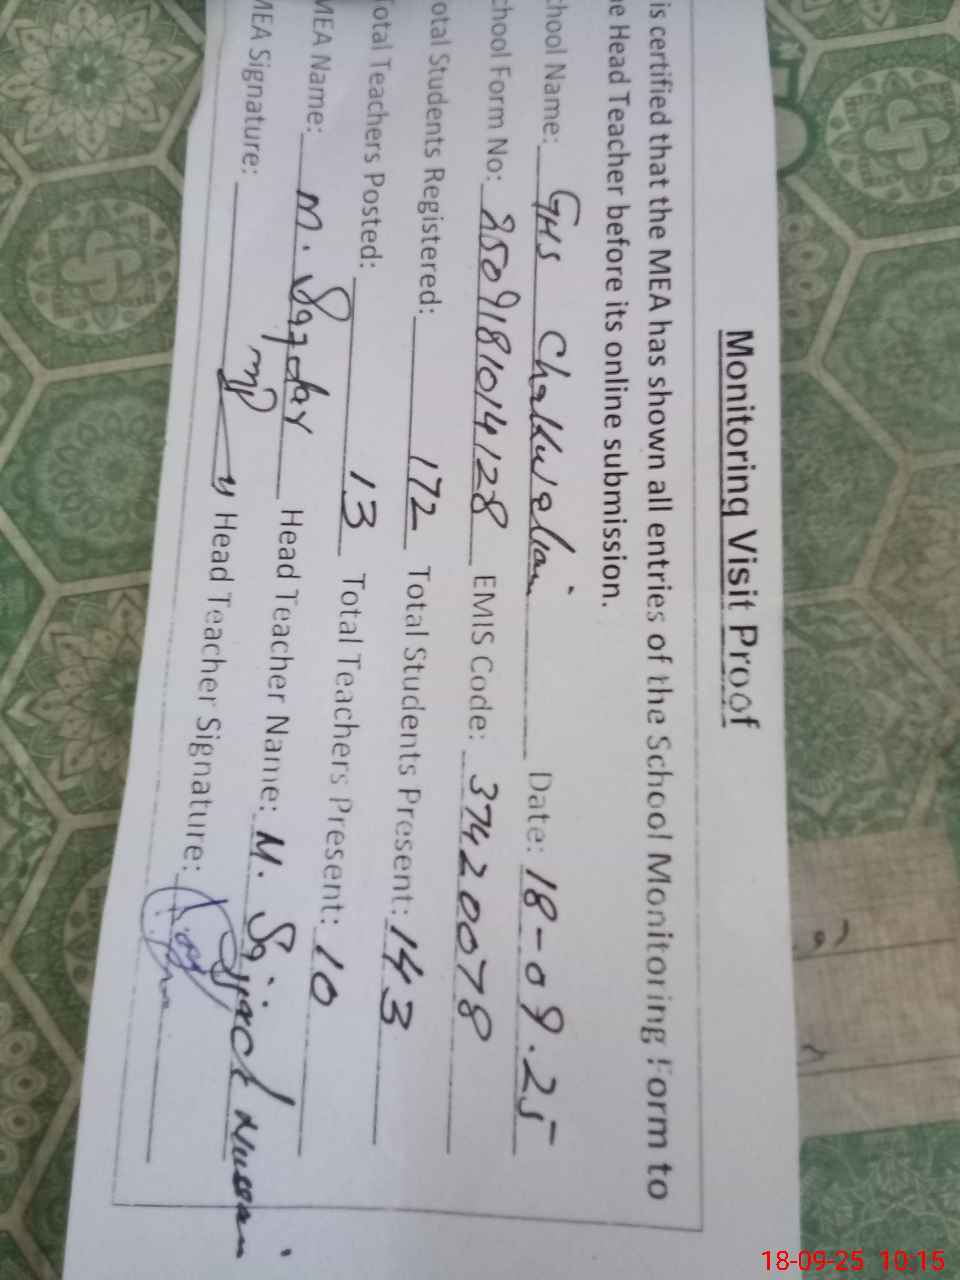 Monitoring Visit Proof
is certified that the MEA has shown all entries of the School Monitoring Form to
e Head Teacher before its online submission.
chool Name: GHS Chakkualian Date: 18-09.25
chool Form No: 2509181014128 EMIS Code: 37420078
otal Students Registered: 172 Total Students Present: 143
Total Teachers Posted: 13 Total Teachers Present: 10
MEA Name: M. Safdar Head Teacher Name: M. Sajjad Hussain
MEA Signature: Head Teacher Signature:
18-09-25 10:15